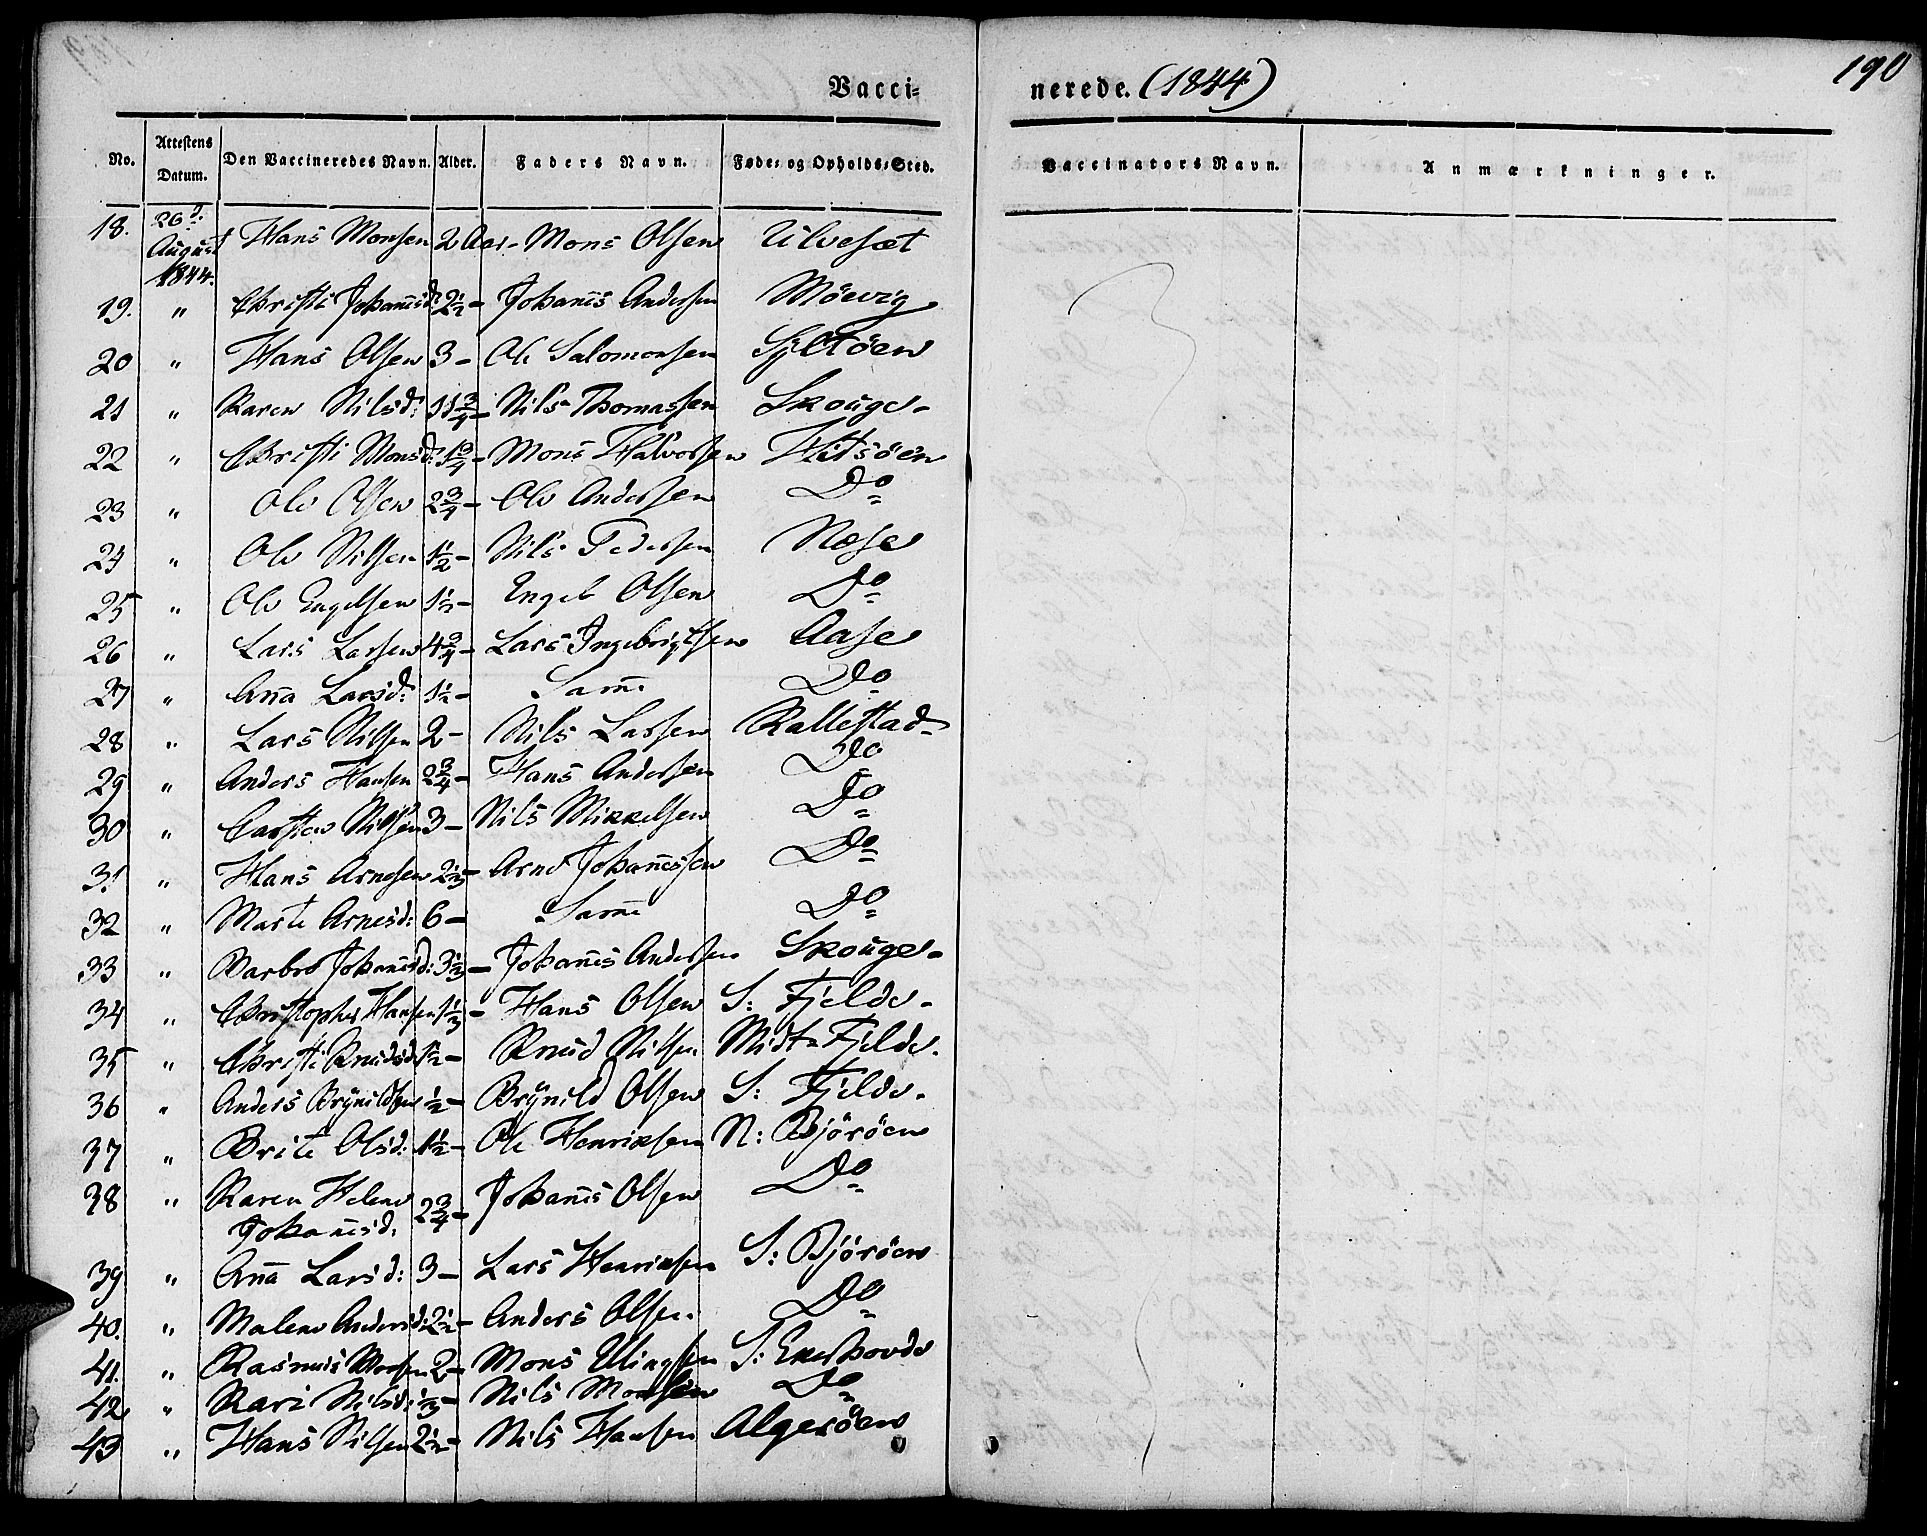 190
Vacci- nerede. (1844)
No. Attestens Datum. Den Vaccineredes Navn. Alder. Faders Navn. Føde- og Opholds-Sted. Vaccinators Navn. Anmærkninger.
18. 26d. August 1844. Hans Monsen 2 Aar - Mons Olsen Ulvesæt
19. " Christi Johañisd: 2½ - Johañis Andersen Möevig
20 " Hans Olsen 3 - Ole Salomonsen Sjeltöen
21 " Karen Nilsd: 11¾ - Nils Thomassen Skouge -
22 " Christi Monsd: 1¾ - Mons Halvorsen Hitsöen
23 " Ole Olsen 2¾ - Ole Andersen Do
24 " Ole Nilsen 1½ - Nils Pedersen Nese
25 " Ole Engelsen 1½ - Engel Olsen Do
26 " Lars Larsen 4¾ - Lars Ingebrigtsen Aase
27 " Aña Larsd: 1½ - Sam̃e Do
28 " Lars Nilsen 2 - Nils Larsen Kallestad -
29 " Anders Hansen 2¾ - Hans Andersen Do
30 " Carsten Nilsen 3 - Nils Mikkelsen Do
31 " Hans Arnesen 2⅓ - Arne Johañessen Do
32 " Marte Arnesd: 6 - Sam̃e Do
33 " Barbro Johañisd: 3⅓ - Johañis Andersen Skouge -
34 " Christopher Hansen 1⅓ - Hans Olsen S: Fjelde -
35 " Christi Knudsd. 1½ - Knud Nilsen Midt-Fjelde.
36 " Anders Brynildsen ½ - Brynild Olsen S: Fjelde.
37 " Brite Olsd: 1½ - Ole Henriksen N: Björöen
38 " Karen Helene Johañisd. 2¾ - Johañis Olsen Do
39 " Aña Larsd: 3 - Lars Henriksen S: Björöen
40. " Malene Andersd: 2½ - Anders Olsen. Do
41. " Rasmus Monsen 2 - Mons Ellingsen S: Ekerhovde
42 " Kari Nilsd: ⅓ - Nils Monsen Do
43 " Hans Nilsen 2½ - Nils Hansen Algeröen